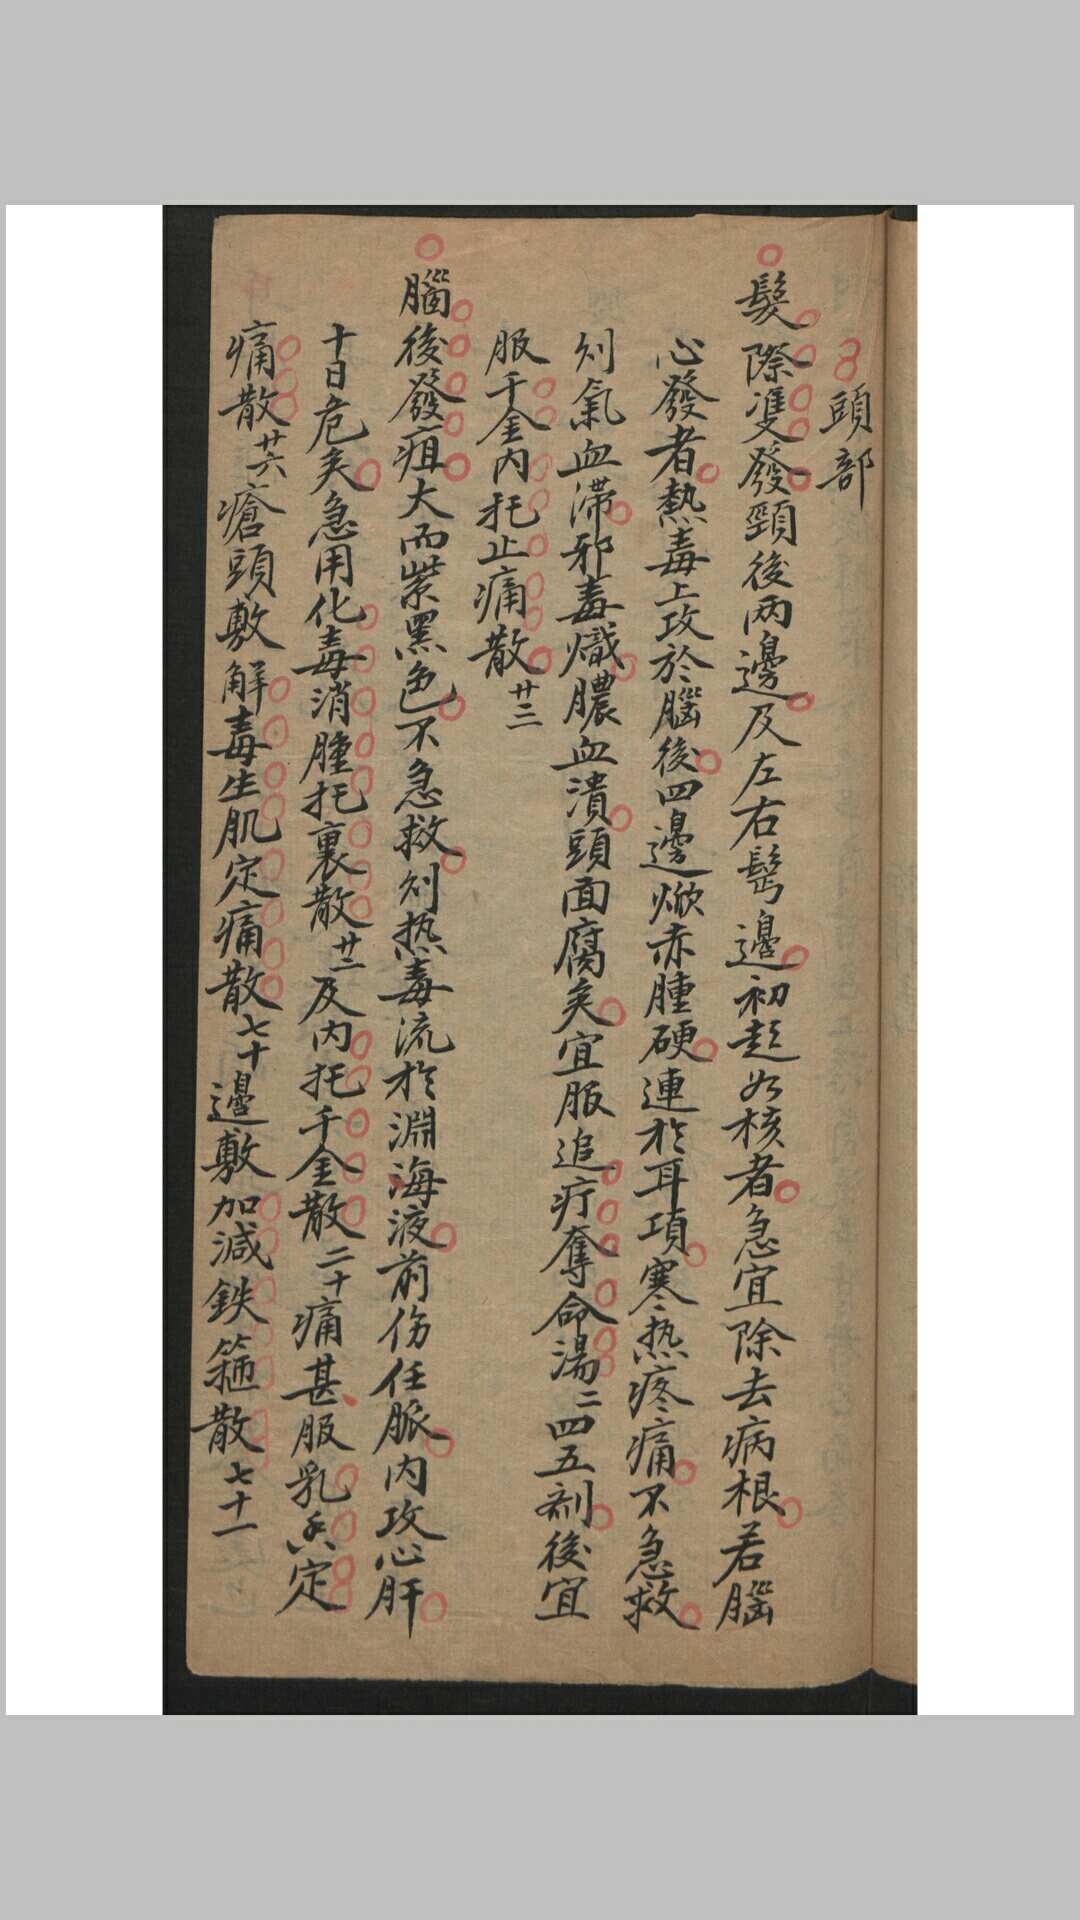 頭部
髮際雙發頸後两邊及左右髩邊初起如核者急宜除去病根若腦
心發者熱毒上攻於腦後四邊焮赤腫硬連於耳項寒热疼痛不急救
则氣血滞邪毒熾膿血潰頭面腐矣宜服追疔奪命湯二四五劑後宜
服千金内托止痛散廿三
腦後發疽大而紫黑色不急救则热毒流於淵海液前伤任脈内攻心肝
十日危矣急用化毒消腫托裏散廿二及内托千金散二十痛甚服乳香定
痛散廿六瘡頭敷解毒生肌定痛散七十邊敷加減鉄箍散七十一